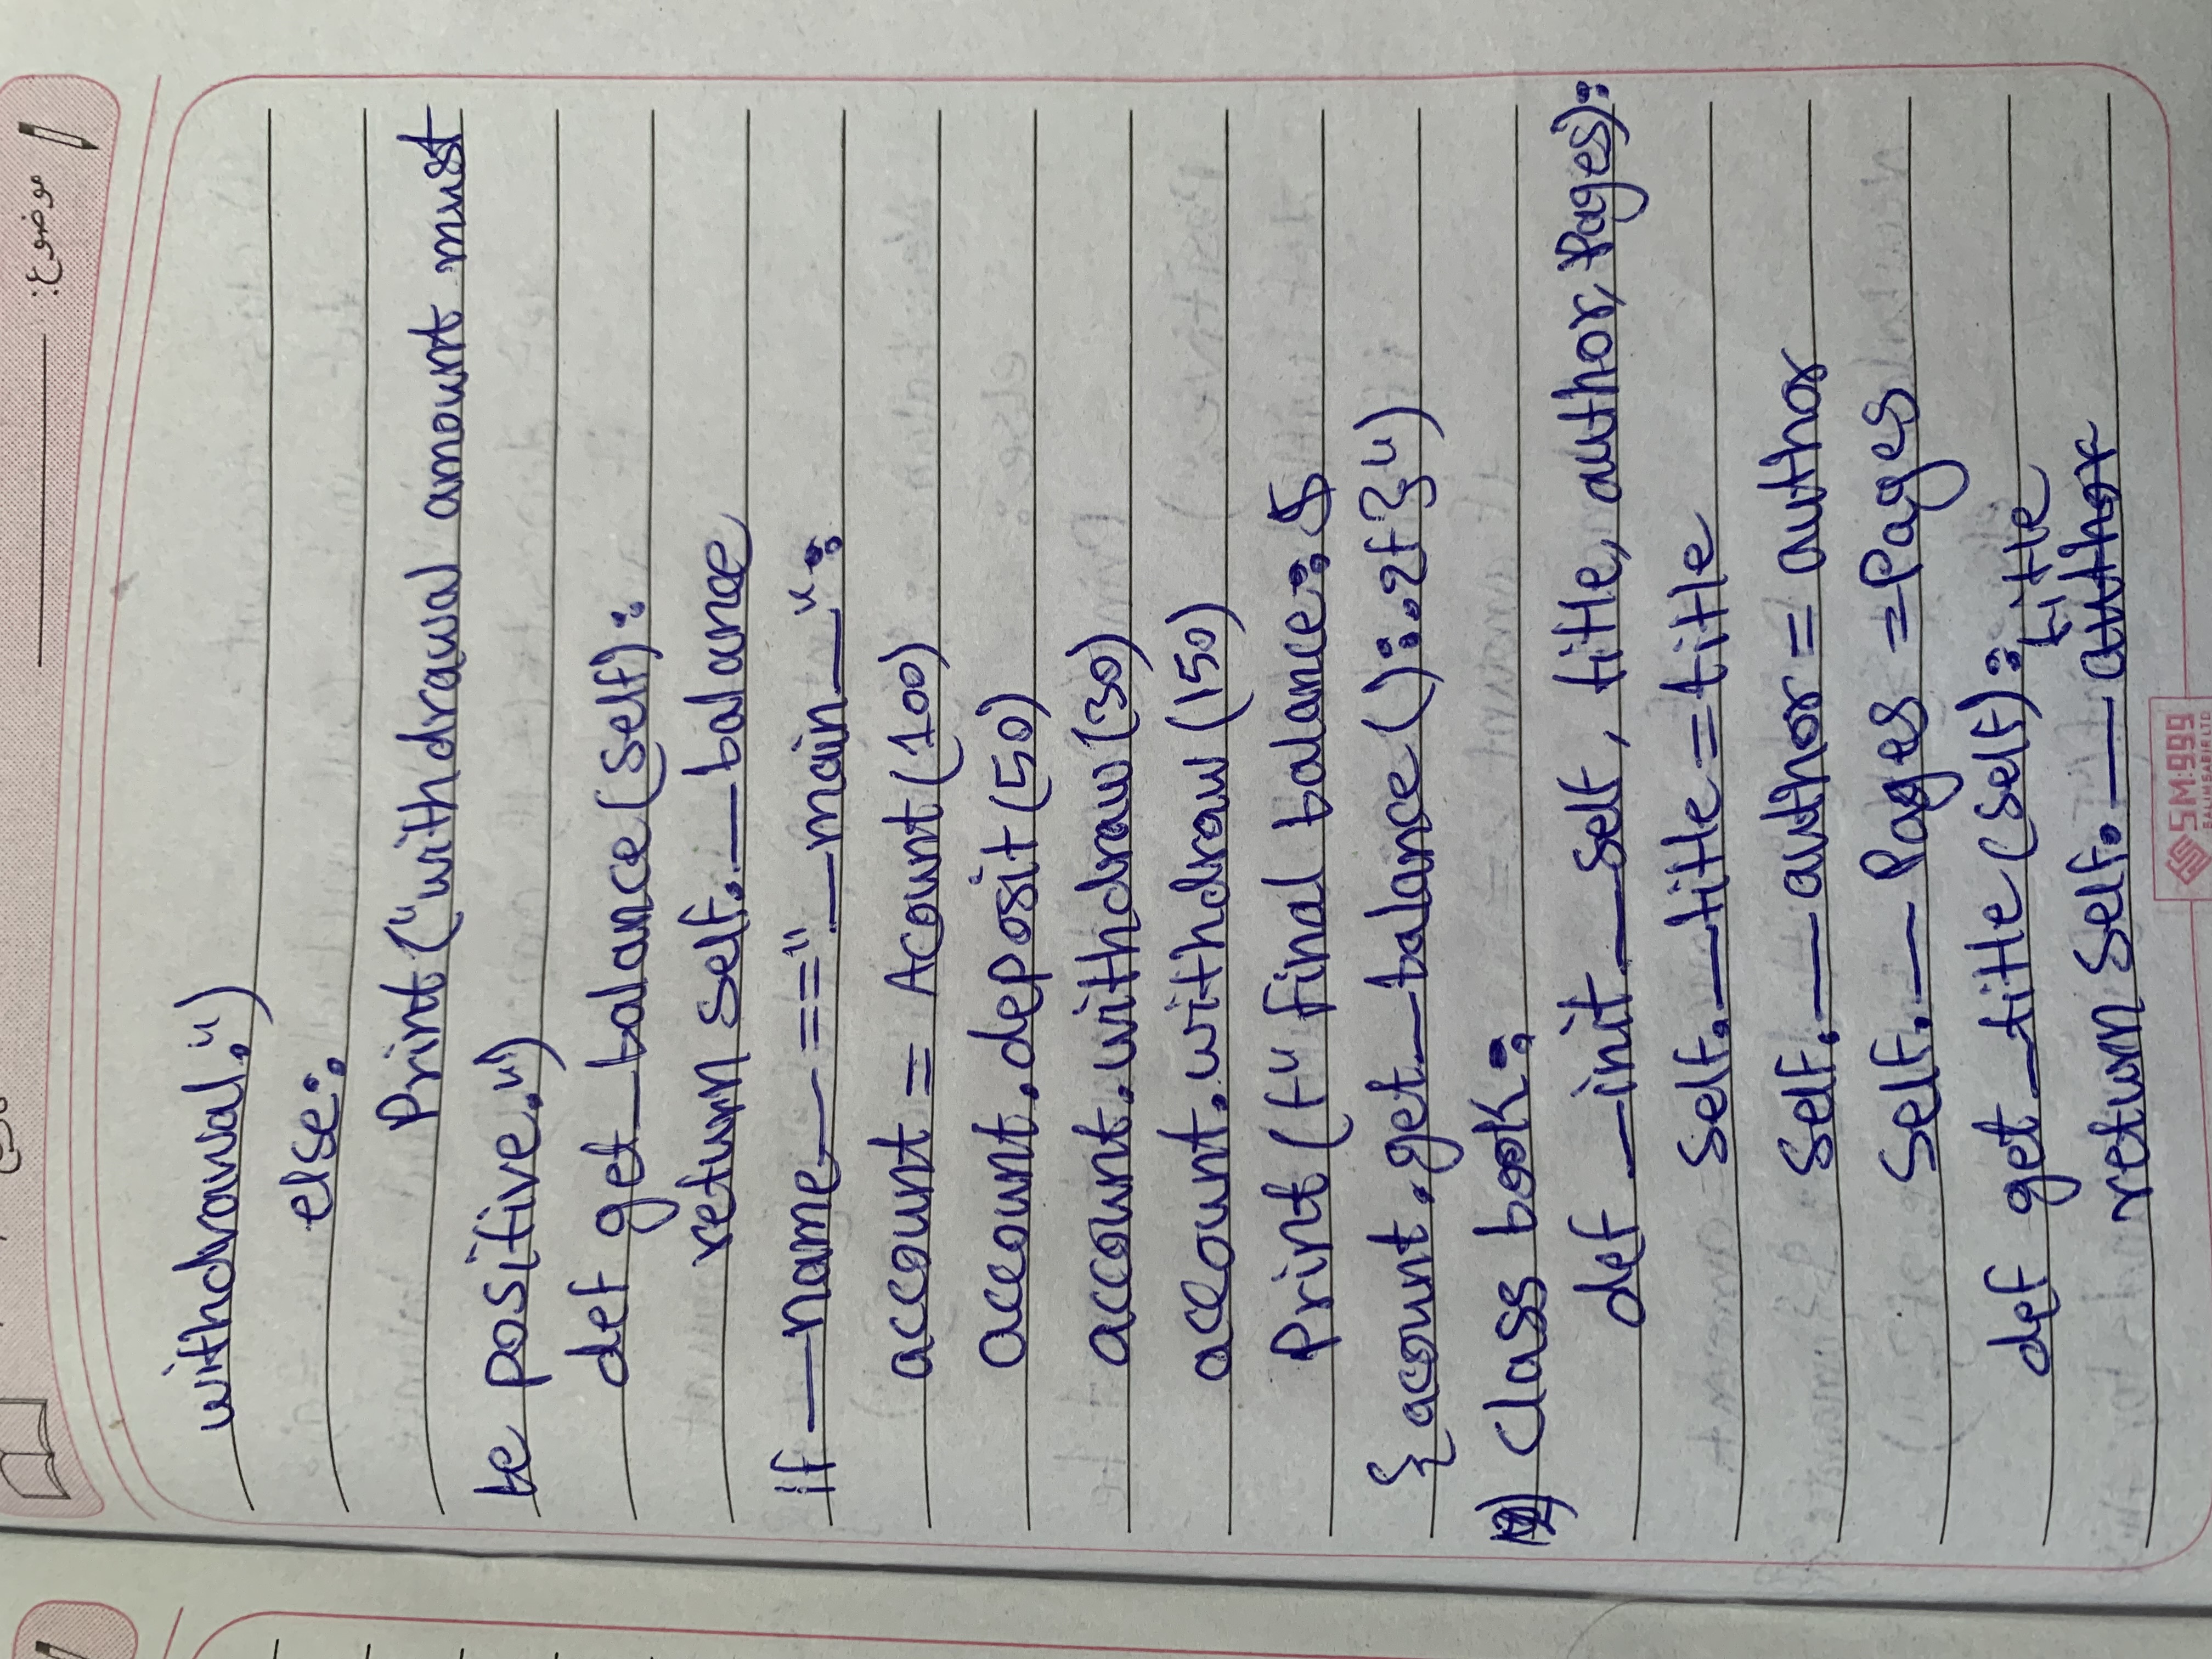 موضوع:
withdrawal.")
else:
Print("withdrawal amount must
be positive.")
def get_balance(self):
return self.__balance
if __name__ == "__main__":
account = Acount(100)
account.deposit(50)
account.withdraw(30)
account.withdraw(150)
Print(f"final balance: $
{acount.get_balance():.2f}")
12) class book:
def __init__self, title, author, Pages):
self.__title = title
self.__author = author
self.__Pages = Pages
def get_title(self):
title
return self.__author
SM:999
SALIM SABIR LTD